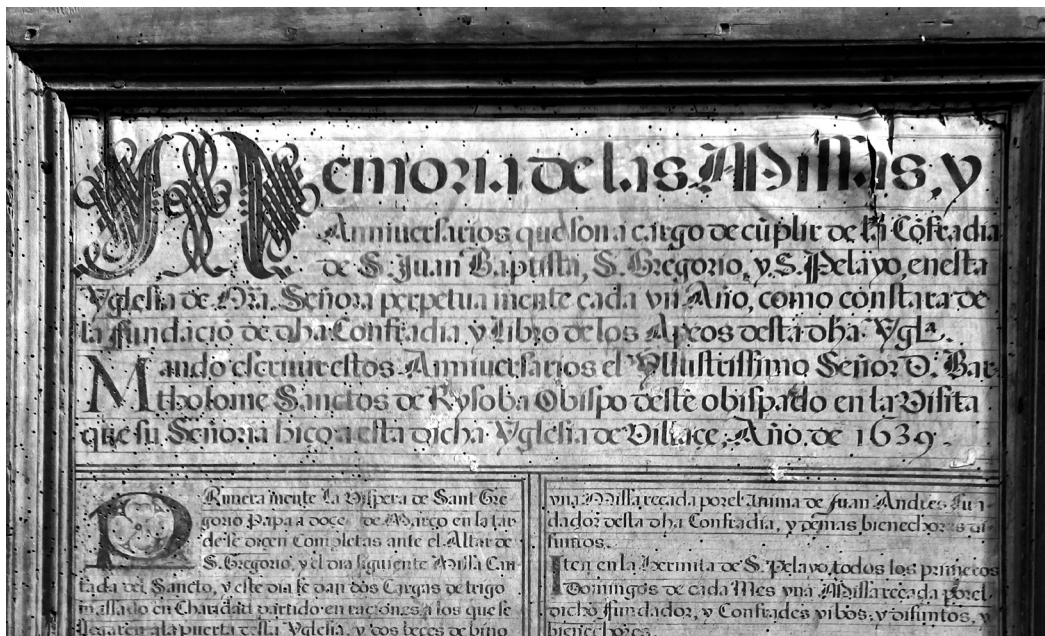 Memoria de las Missas, y
Anniuersarios que son a cargo de cũplir de la Cõfradia
de S. Juan Baptista, S. Gregorio, y S. Pelayo, en esta
Yglesia de Nr̃a. Señora perpetuamente cada vn Año, como constara de
la ffundaciõ de dha Confradia y Libro de los Apeos desta dha Ygla.
Mando escriuir estos Anniuersarios el Yllustrissimo Señor D. Bar-
tholome Sanctos de Rysoba Obispo deste obispado en la Visita
que su Señoria hiço a esta dicha Yglesia de Villace, Año. de 1639.
Rimera mente La Vispera de Sant Gre
gorio Papa a doce de Março en la tar
de se digen Completas ante el Altar de
S. Gregorio, y el dia siguiente Missa Can
tada del Sancto, y este dia se dan dos Cargas de trigo
massado en Charidad partido en raciones a los que se
llegaren a la puerta desta Yglesia, y dos beces de bino
vna Missa reçada por el Anima de Juan Andres Fun
dador desta dha Confradia, y demas bienechores di
funtos.
Iten en la Hermita de S. Pelayo, todos los primeros
Domingos de cada Mes vna Missa reçada por el
dicho ffundador, y Confrades vibos, y difuntos, y
bienechores.